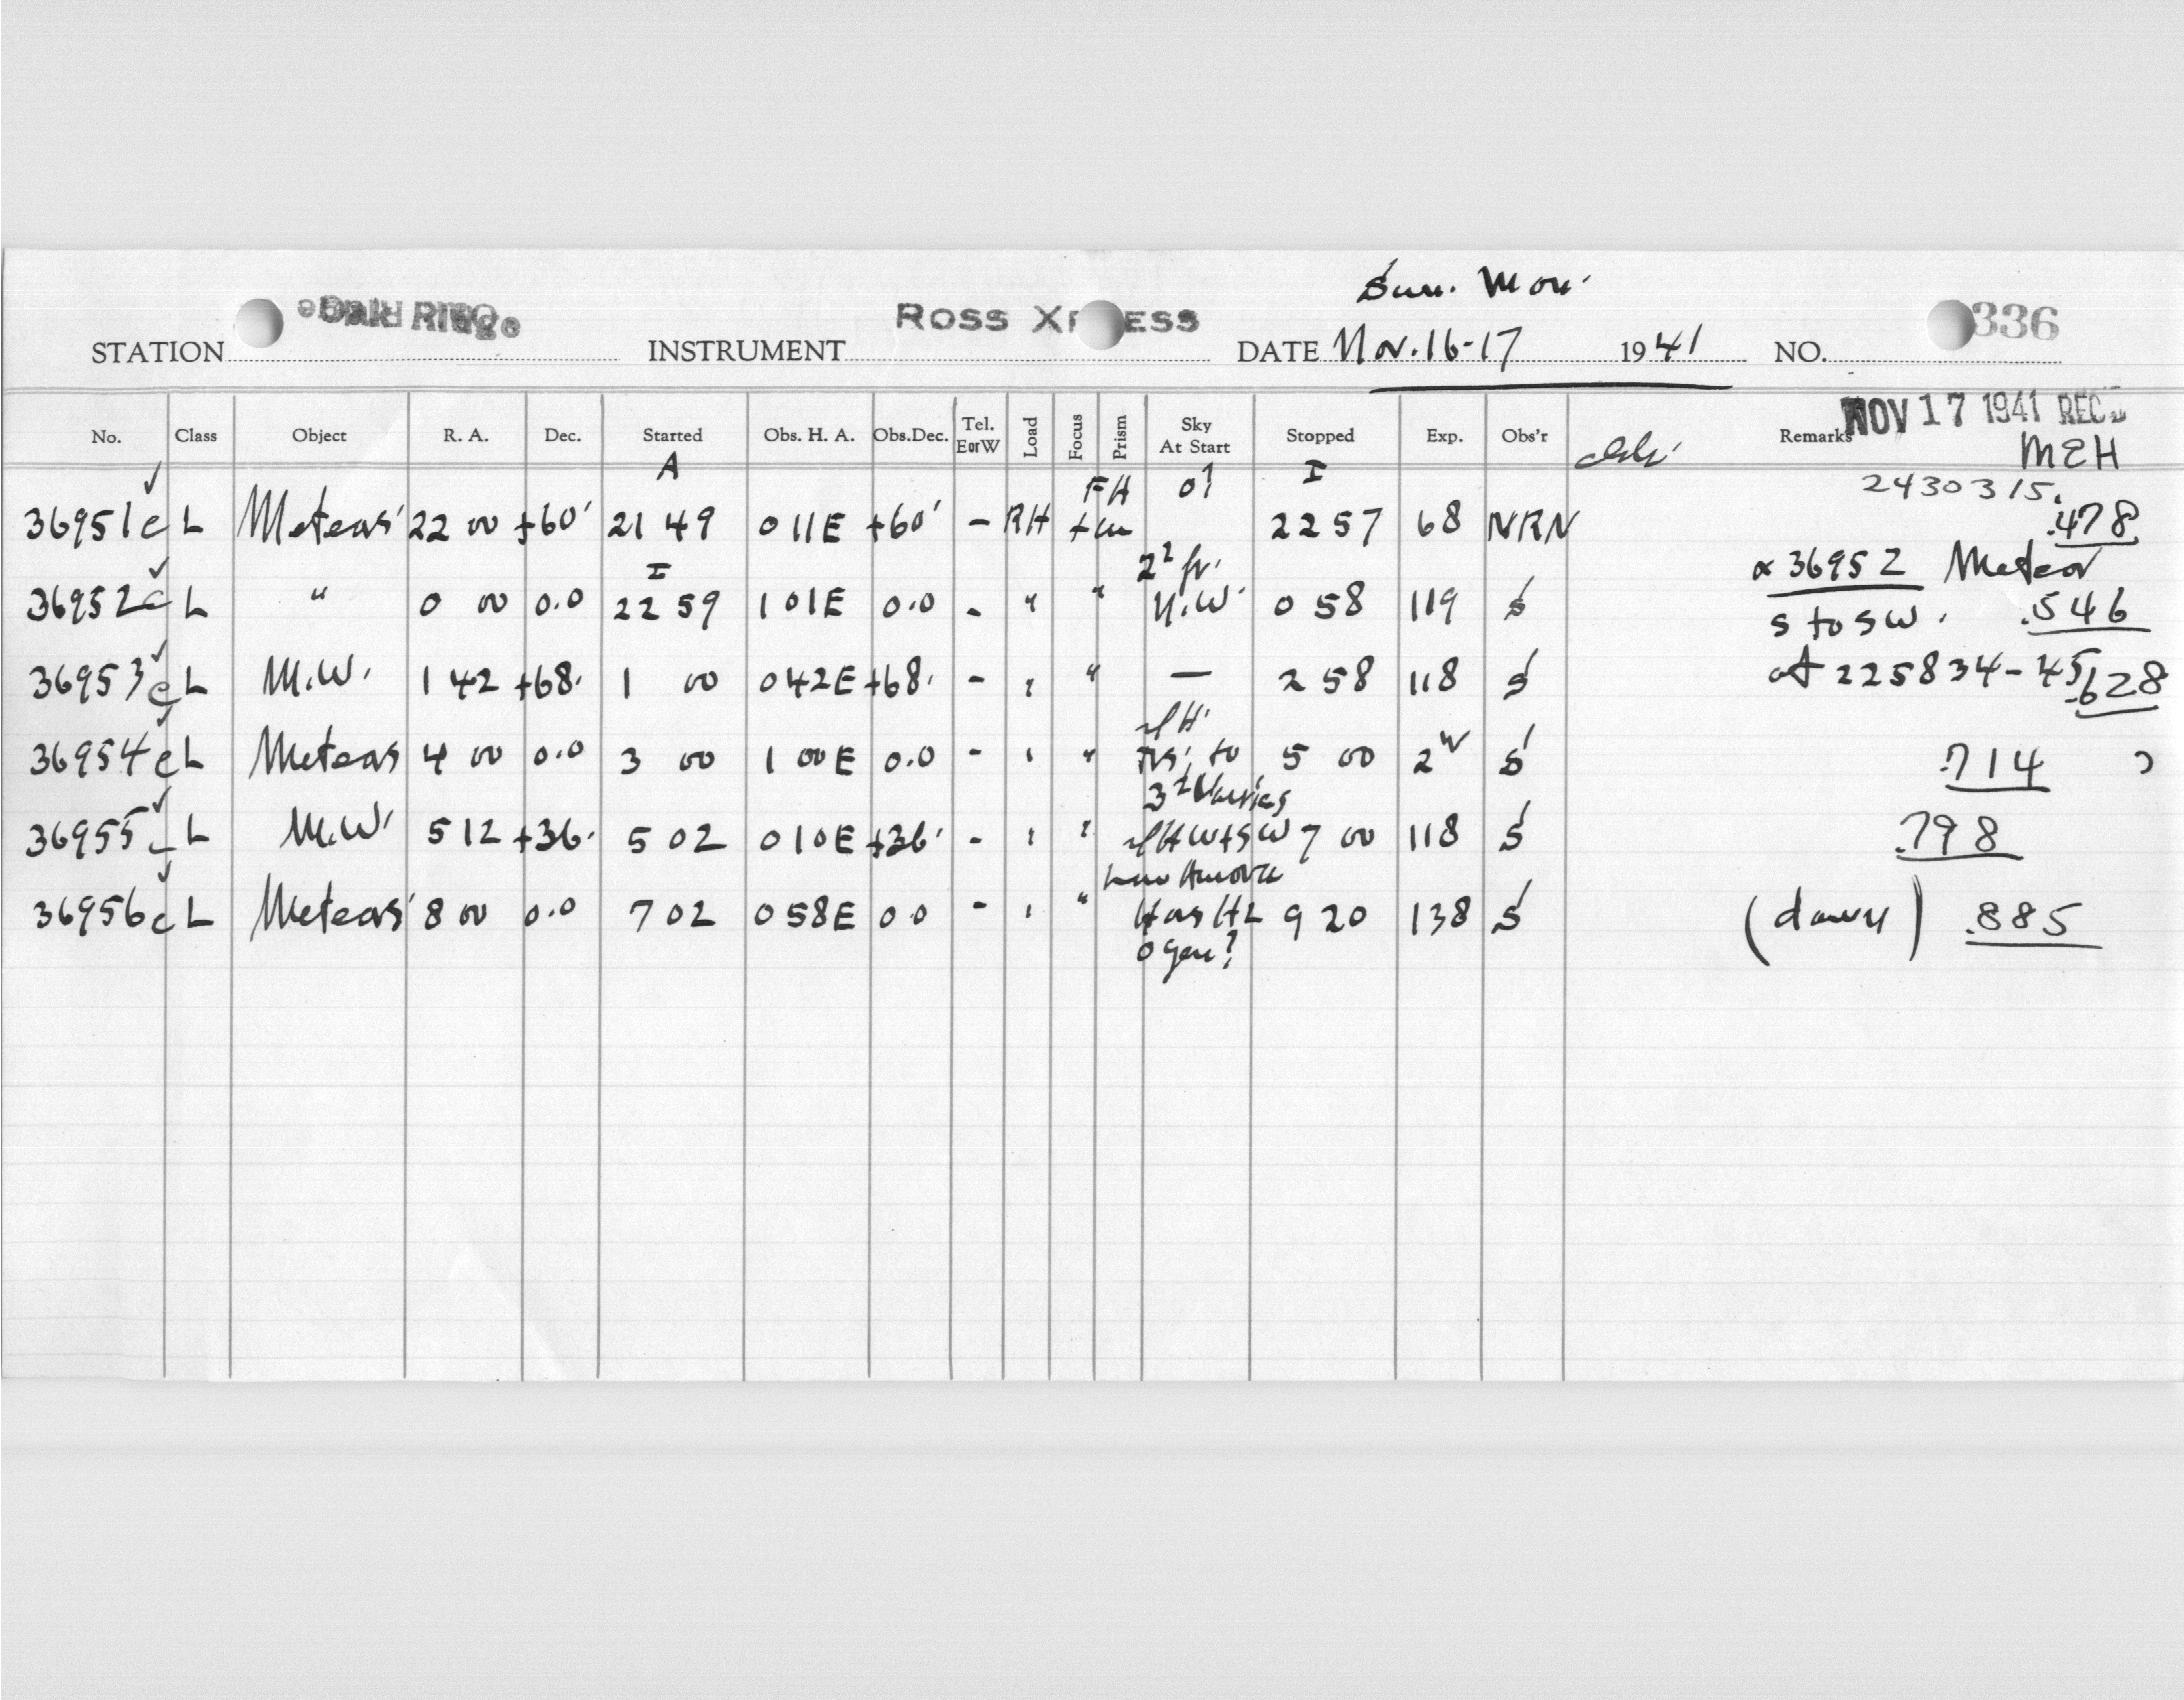 Sun. Mon.
STATION Oak Ridge INSTRUMENT ROSS XPRESS DATE Nov. 16-17 1941 NO. 336
No. Class Object R. A. Dec. Started Obs. H. A. Obs.Dec. Tel. EorW Load Focus Prism Sky At Start Stopped Exp. Obs'r Remarks
NOV 17 1941 REC
MEH
A FH 0? I 2430315.
36951c L Meteors 22 00 +60 21 49 011E +60 - RH 2257 68 NRN .478
I α 36952 Meteor
36952c L " 0 00 0.0 22 59 101E 0.0 - " " N.W. 0 58 119 S S to SW. .546
36953c L M.W. 1 42 +68. 1 00 042E +68. - " " — 2 58 118 S at 225834-45 .628
36954c L Meteors 4 00 0.0 3 00 1 00E 0.0 - " " to 5 00 2 S .714
36955c L M.W. 5 12 +36. 5 02 010E +36 - " " W+SW 7 00 118 S .798
36956c L Meteors 8 00 0.0 7 02 058E 0 0 - " " 9 20 138 S (dawn) .885